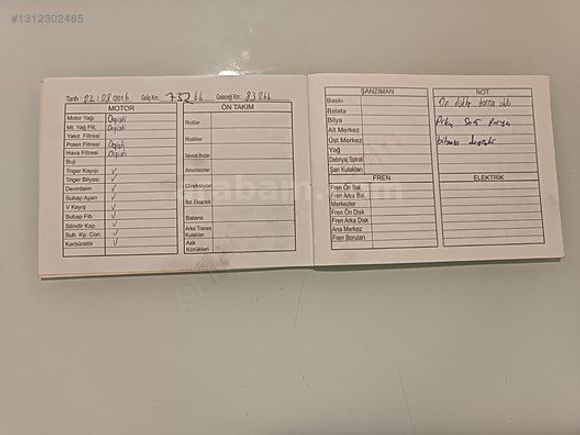 #1312302465
Tarih: 02/08/2016 Geliş Km.: 73266 Geleceği Km.: 83266
MOTOR
Motor Yağı Değişti
Mt. Yağ Filt. Değişti
Yakıt Filtresi
Polen Filtresi Değişti
Hava Filtresi Değişti
Buji
Triger Kayışı ✓
Triger Bilyası ✓
Devirdaim ✓
Subap Ayarı ✓
V Kayış ✓
Subap Fib. ✓
Silindir Kap. ✓
Sub. Kp. Con. ✓
Karbüratör ✓
ÖN TAKIM
Rotlar
Rotiller
Amortisörler
Direksiyon
Rot. Eksantrik
Balans
Arka Traves Kulakları
Aks Körükleri
ŞANZIMAN
Baskı
Balata
Bilya
Alt Merkez
Üst Merkez
Yağ
Debriyaj Spirali
Şan Kulakları
FREN
Fren Ön Bal.
Fren Arka Bal.
Merkezler
Fren Ön Disk
Fren Arka Disk
Ana Merkez
Fren Boruları
NOT
Ön diskler torna oldu
Arka Sağ
bilyası değişti
ELEKTRİK
arabam.com